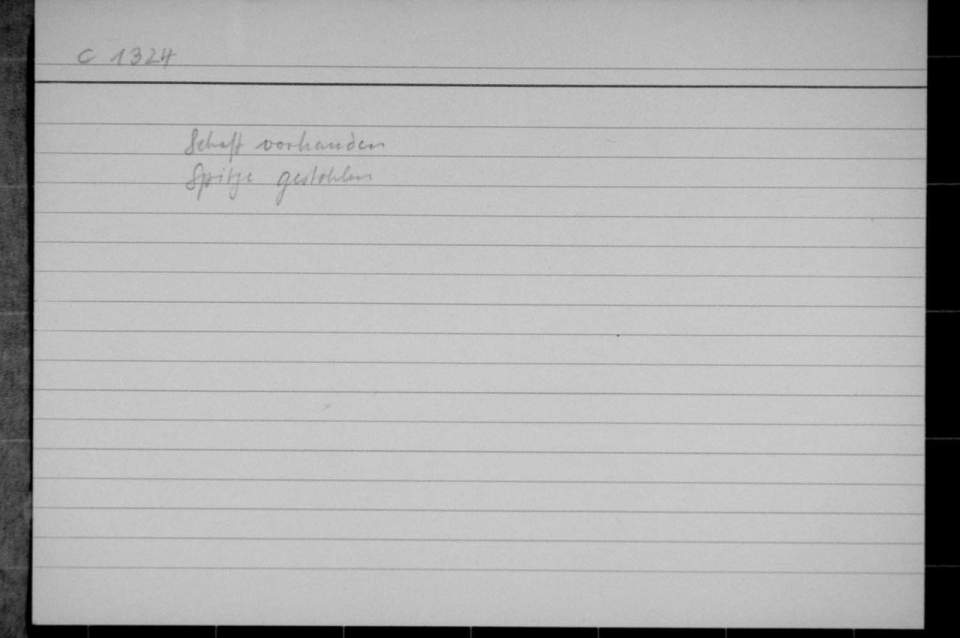 C 1324
Schaft vorhanden
Spitze gestohlen